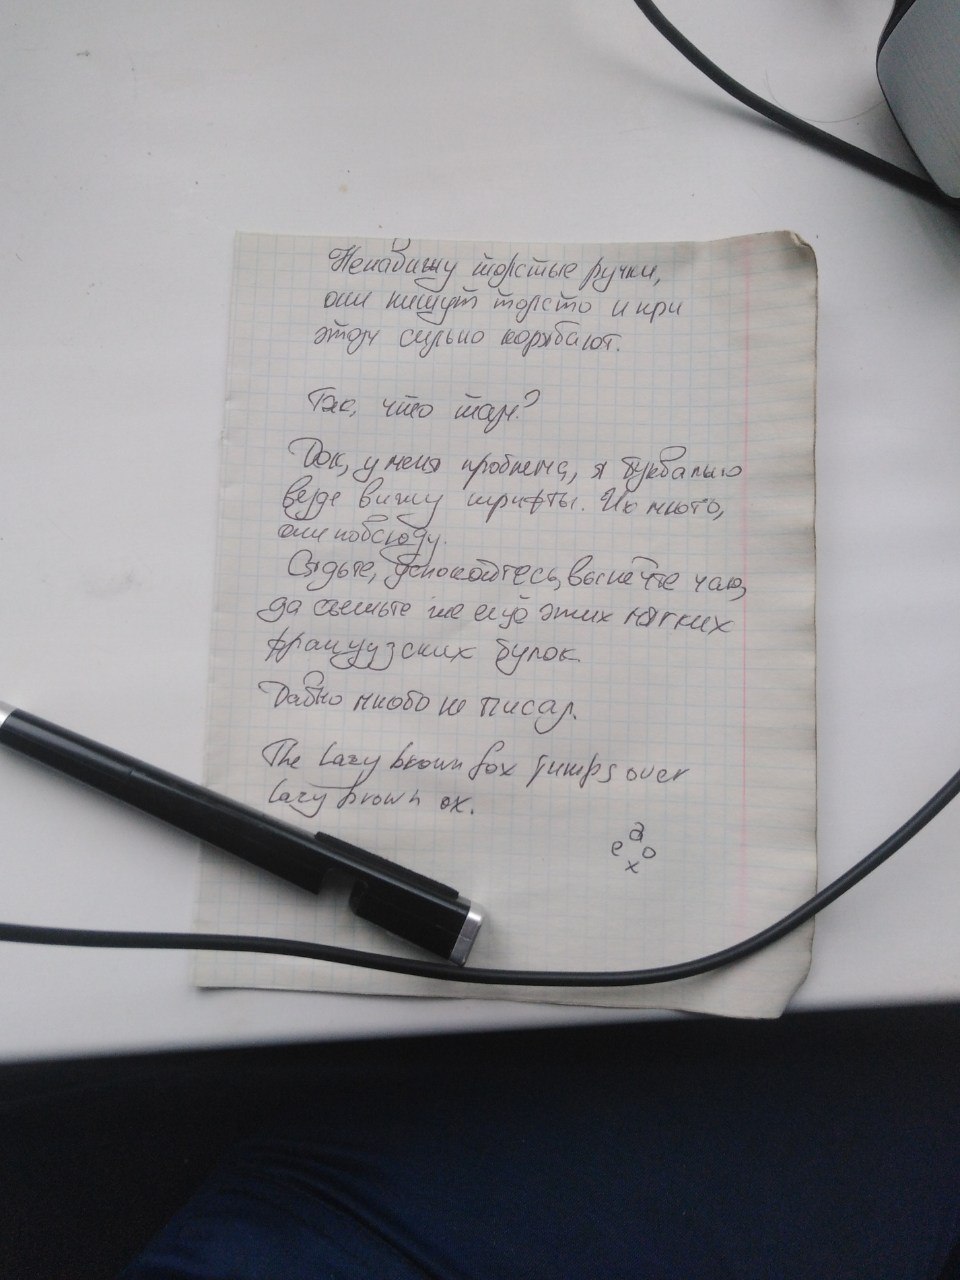 Ненавижу толстые ручки,
они пишут толсто и при
этом сильно корябают.
Так, что там?
Док, у меня проблема, я буквально
везде вижу шрифты. Их много,
они повсюду.
Сядьте, успокойтесь, выпейте чаю,
да съешьте же ещё этих мягких
французских булок.
Давно много не писал.
The lazy brown fox jumps over
lazy brown ox.
a
e o
x